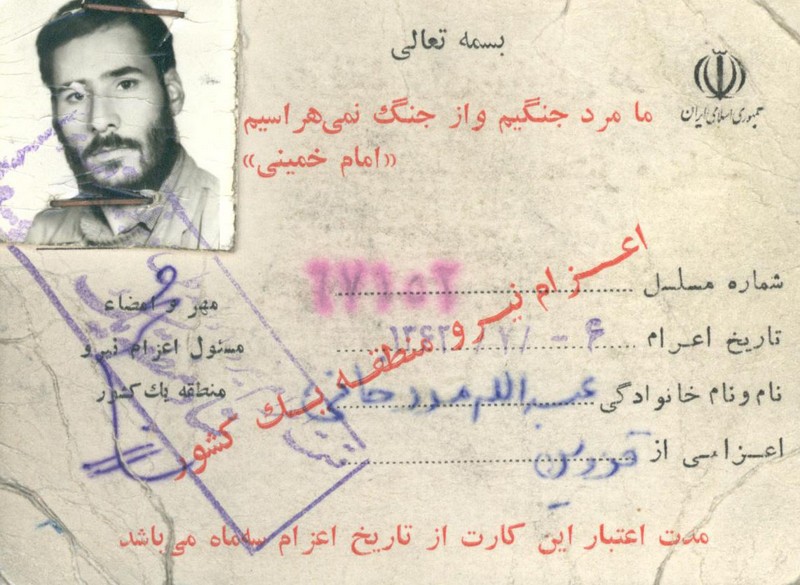 بسمه تعالی
جمهوری اسلامی ایران
ما مرد جنگیم و از جنگ نمی‌هراسیم
«امام خمینی»
شماره مسلسل
تاریخ اعزام ۶ - /۷/ ۱۳۶۲
نام و نام خانوادگی عبدالله
اعزامی از قزوین
مهر و امضاء
مسئول اعزام نیرو
منطقه یك کشور
اعزام نیرو منطقه یك کشور
مدت اعتبار این کارت از تاریخ اعزام سه‌ماه می‌باشد